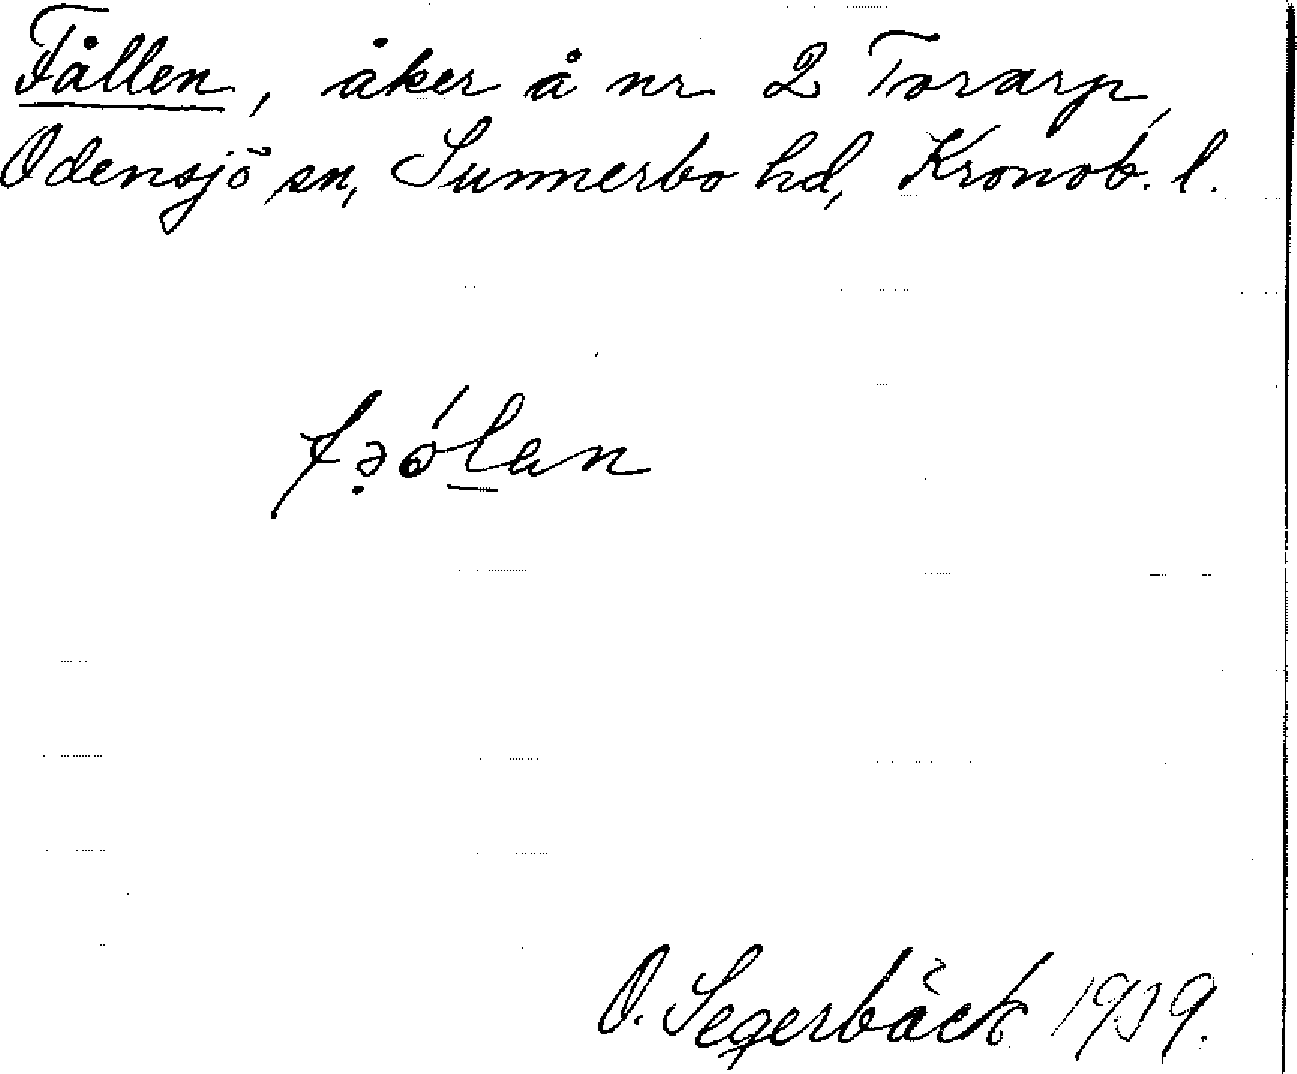 Fållen, åker å nr 2 Torarp,
Odensjö sn, Sunnerbo hd, Kronob. l.
fə̣ólan
O. Segerbäck 1939.